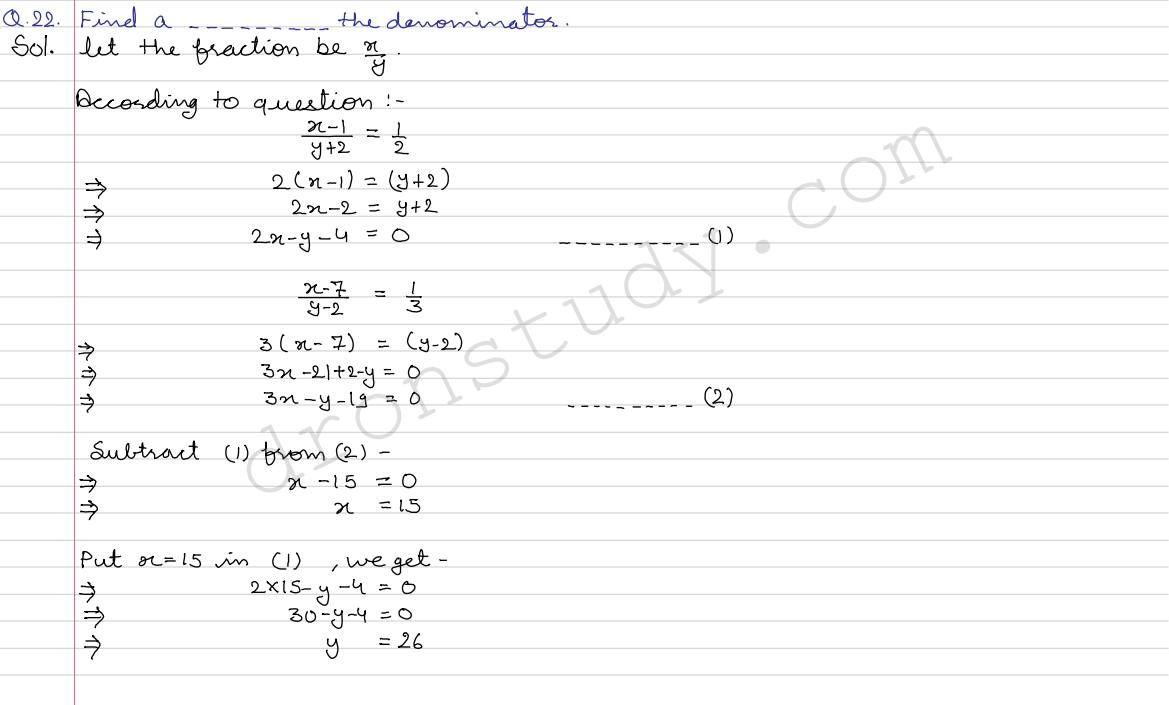 Q.22. Find a _ _ _ _ _ _ _ _ _ the denominator.
Sol. let the fraction be x/y.
According to question :-
(x-1)/(y+2) = 1/2
⇒ 2(x-1) = (y+2)
⇒ 2x-2 = y+2
⇒ 2x-y-4 = 0 _ _ _ _ _ _ _ _ _ _ (1)
(x-7)/(y-2) = 1/3
⇒ 3(x-7) = (y-2)
⇒ 3x-21+2-y = 0
⇒ 3x-y-19 = 0 _ _ _ _ _ _ _ _ _ _ (2)
Subtract (1) from (2) -
⇒ x-15 = 0
⇒ x = 15
Put x=15 in (1) , we get -
⇒ 2×15-y-4 = 0
⇒ 30-y-4 = 0
⇒ y = 26
dronstudy.com